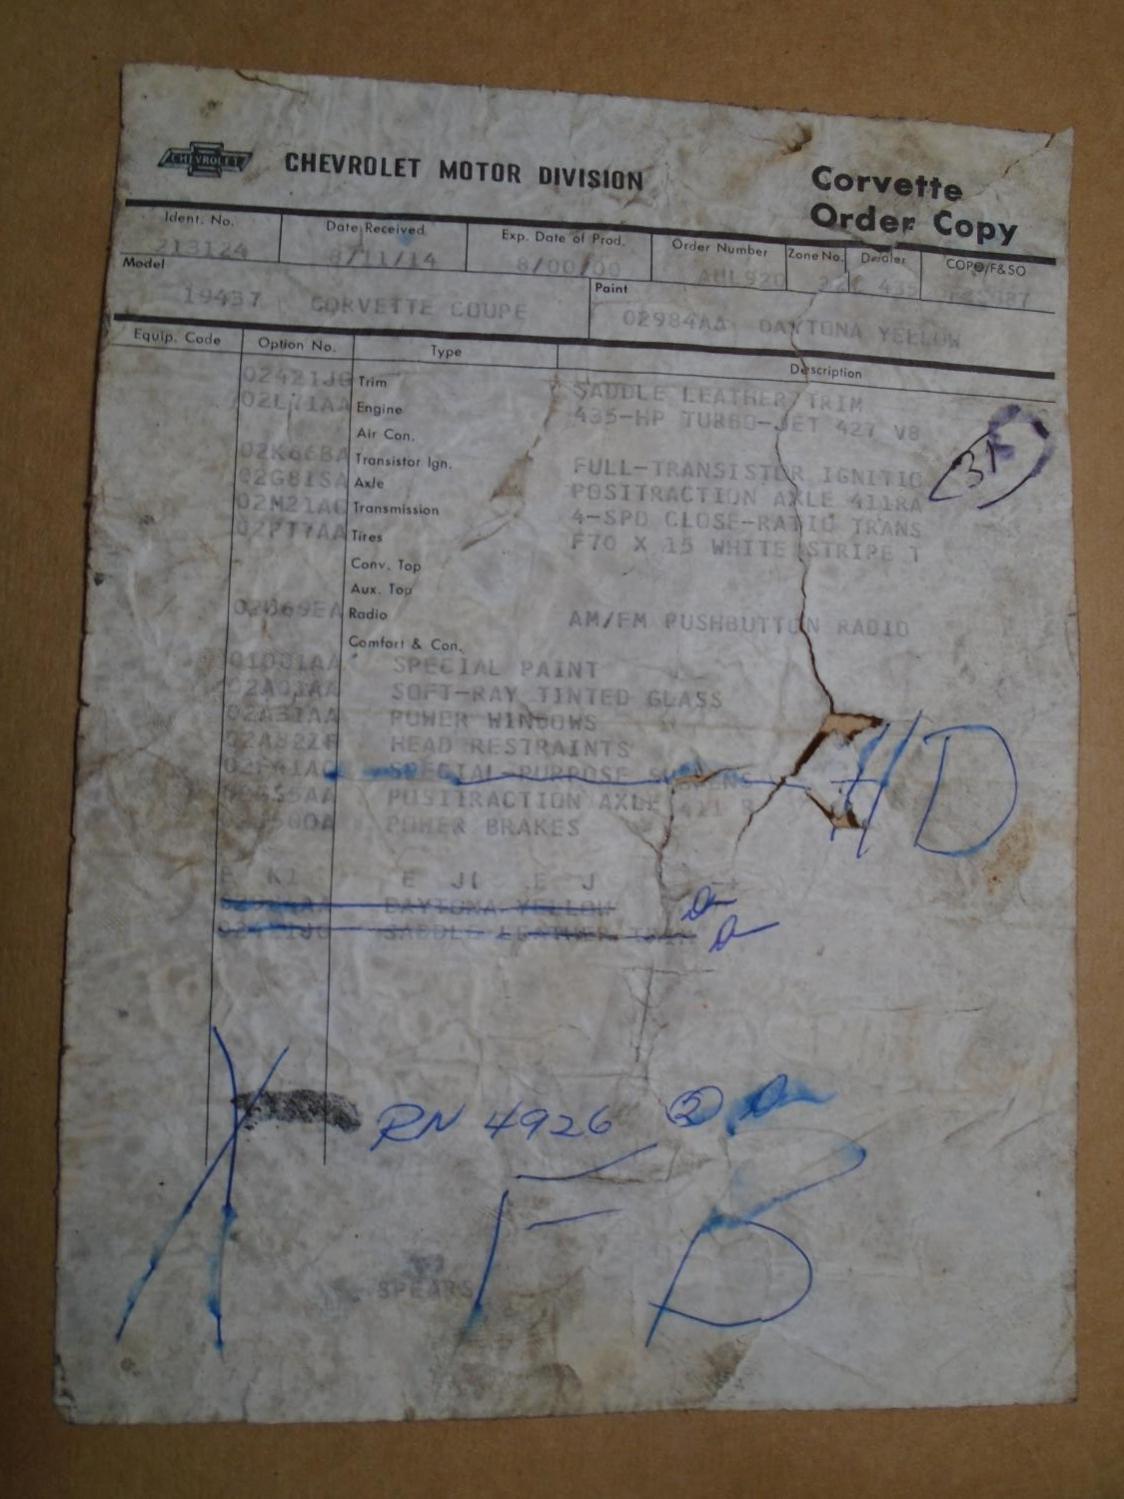 CHEVROLET
CHEVROLET MOTOR DIVISION
Corvette
Order Copy
Ident. No. Date Received Exp. Date of Prod. Order Number Zone No. Dealer COPO/F&SO
213124 8/11/14 8/00/00
Model Paint
19437 CORVETTE COUPE 02984AA DAYTONA YELLOW
Equip. Code Option No. Type Description
02421JG Trim SADDLE LEATHER TRIM
02L71AA Engine 435-HP TURBO-JET 427 V8
Air Con.
02K66BA Transistor Ign. FULL-TRANSISTOR IGNITIO
02G81SA Axle POSITRACTION AXLE 411RA
02M21AC Transmission 4-SPD CLOSE-RATIO TRANS
02PT7AA Tires F70 X 15 WHITE STRIPE T
Conv. Top
Aux. Top
02U69EA Radio AM/FM PUSHBUTTON RADIO
Comfort & Con.
SPECIAL PAINT
02A01AA SOFT-RAY TINTED GLASS
02A31AA POWER WINDOWS
HEAD RESTRAINTS
02F41AC SPECIAL-PURPOSE SUSPENS
POSITRACTION AXLE 411 R
POWER BRAKES
HD
DAYTONA YELLOW
SADDLE LEATHER TRIM
RN 4926 2
SPEARS